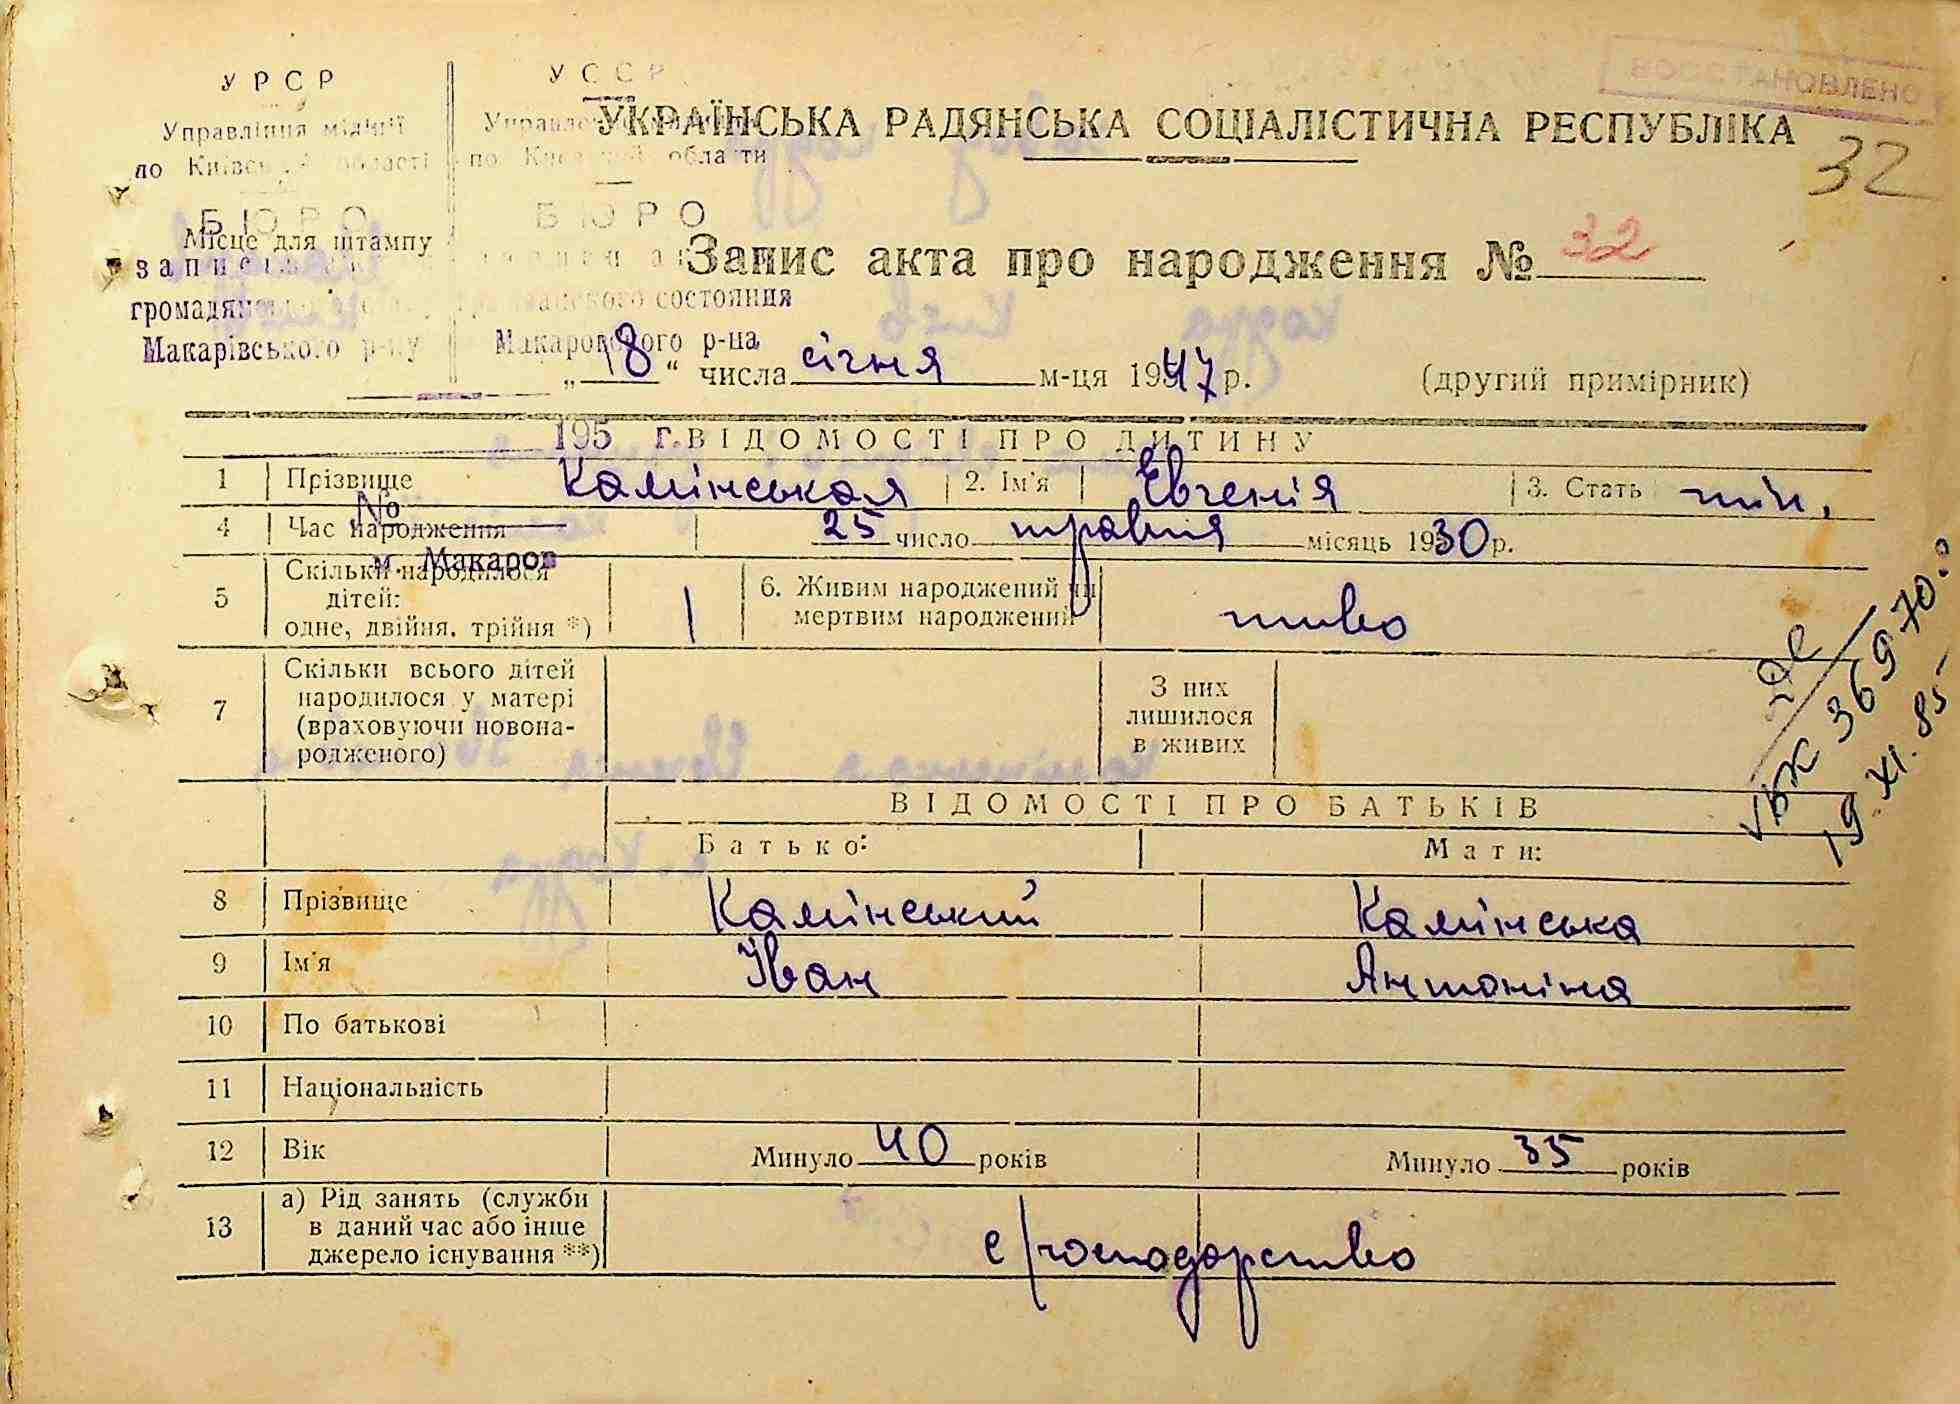 ВОССТАНОВЛЕНО
УРСР
УССР
Управління міліції
по Київській області
по Киевской области
УКРАЇНСЬКА РАДЯНСЬКА СОЦІАЛІСТИЧНА РЕСПУБЛІКА
32
БЮРО
БЮРО
Місце для штампу
Запис акта про народження № 32
громадянського состояния
Макарівського р-ну
Макаровского р-на
„18“ числа січня м-ця 1947 р.
(другий примірник)
195 г.
ВІДОМОСТІ ПРО ДИТИНУ
1 Прізвище Камінськая 2. Ім'я Евгенія 3. Стать жін.
№
4 Час народження 25 число травня місяць 1930 р.
м. Макаров
5 Скільки народилося дітей: одне, двійня, трійня *) 1 6. Живим народжений чи мертвим народжений живо
7 Скільки всього дітей народилося у матері (враховуючи новонародженого) З них лишилося в живих
ІБК 369 70
19.XI.85
ВІДОМОСТІ ПРО БАТЬКІВ
Батько: Мати:
8 Прізвище Камінський Камінська
9 Ім'я Іван Антоніна
10 По батькові
11 Національність
12 Вік Минуло 40 років Минуло 35 років
13 а) Рід занять (служби в даний час або інше джерело існування **) с/господарство